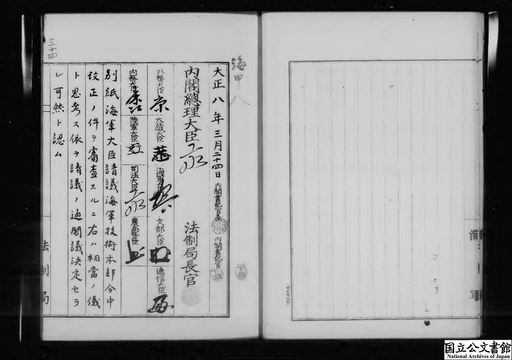 海甲八
大正八年三月二十四日
内閣書記官長
内閣書記官
内閣總理大臣
法制局長官
外務大臣
大藏大臣
海軍大臣
文部大臣
遞信大臣
内務大臣
陸軍大臣
司法大臣
農商務大臣
別紙海軍大臣請議海軍技術本部令中
改正ノ件ヲ審査スルニ右ハ相當ノ儀
ト思考ス依テ請議ノ通閣議決定セラ
レ可然ト認ム
法制局
三十四
国立公文書館
National Archives of Japan